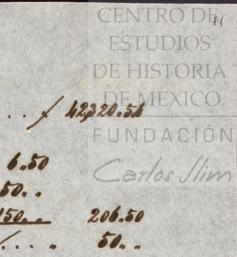 CENTRO DE
ESTUDIOS
DE HISTORIA
DE MEXICO
FUNDACIÓN
Carlos Slim
42,320.54
6.50
50..
150.. 206.50
50..